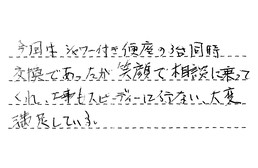 今回は シャワー付き便座の3台同時
交換であったが、笑顔で相談に乗って
くれ、工事もスピーディーに行ない、大変
満足しています。